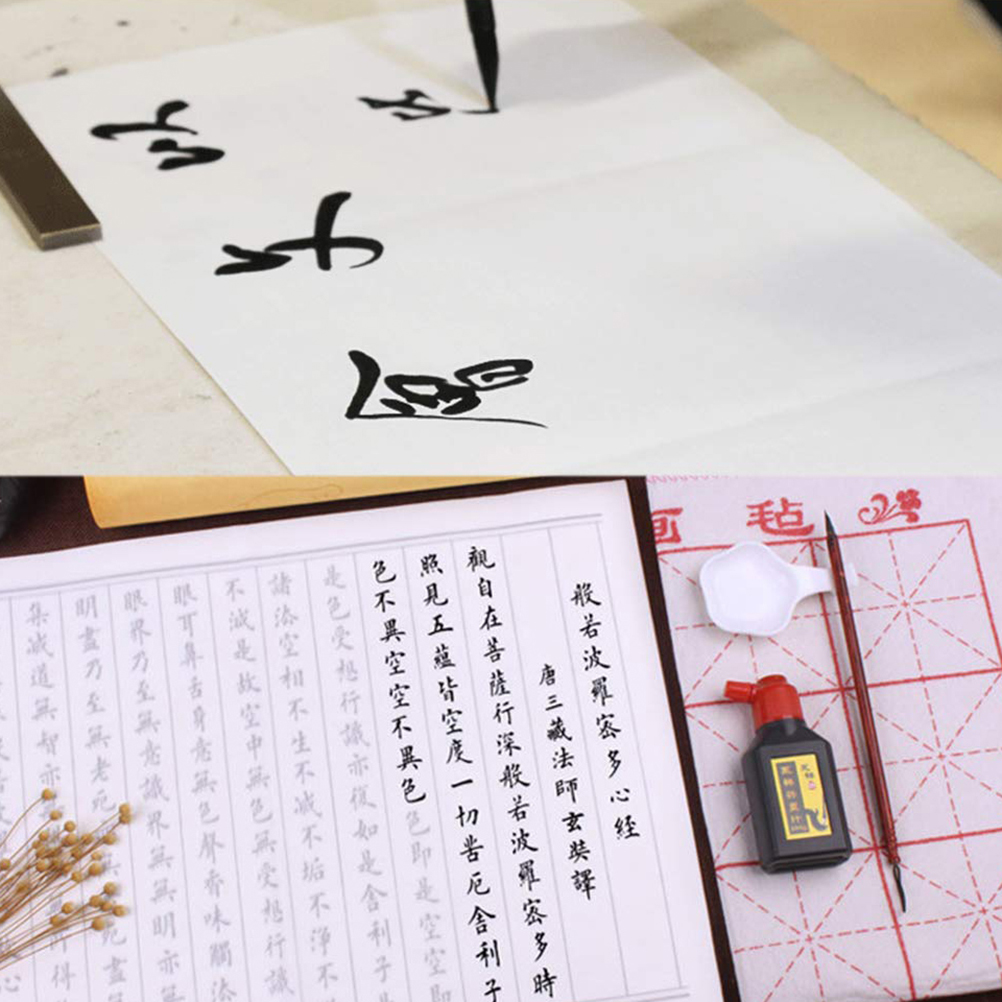 画毡
般若波羅密多心經
唐三藏法師玄奘譯
觀自在菩薩行深般若波羅密多時
照見五蘊皆空度一切苦厄舍利子
色不異空空不異色色即是空空
是色受想行識亦復如是舍利子是
諸法空相不生不滅不垢不淨不
不滅是故空中無色無受想行識
眼耳鼻舌身意無色聲香味觸法
眼界乃至無意識界無無明亦
明盡乃至無老死 死盡
集滅道無智亦 得